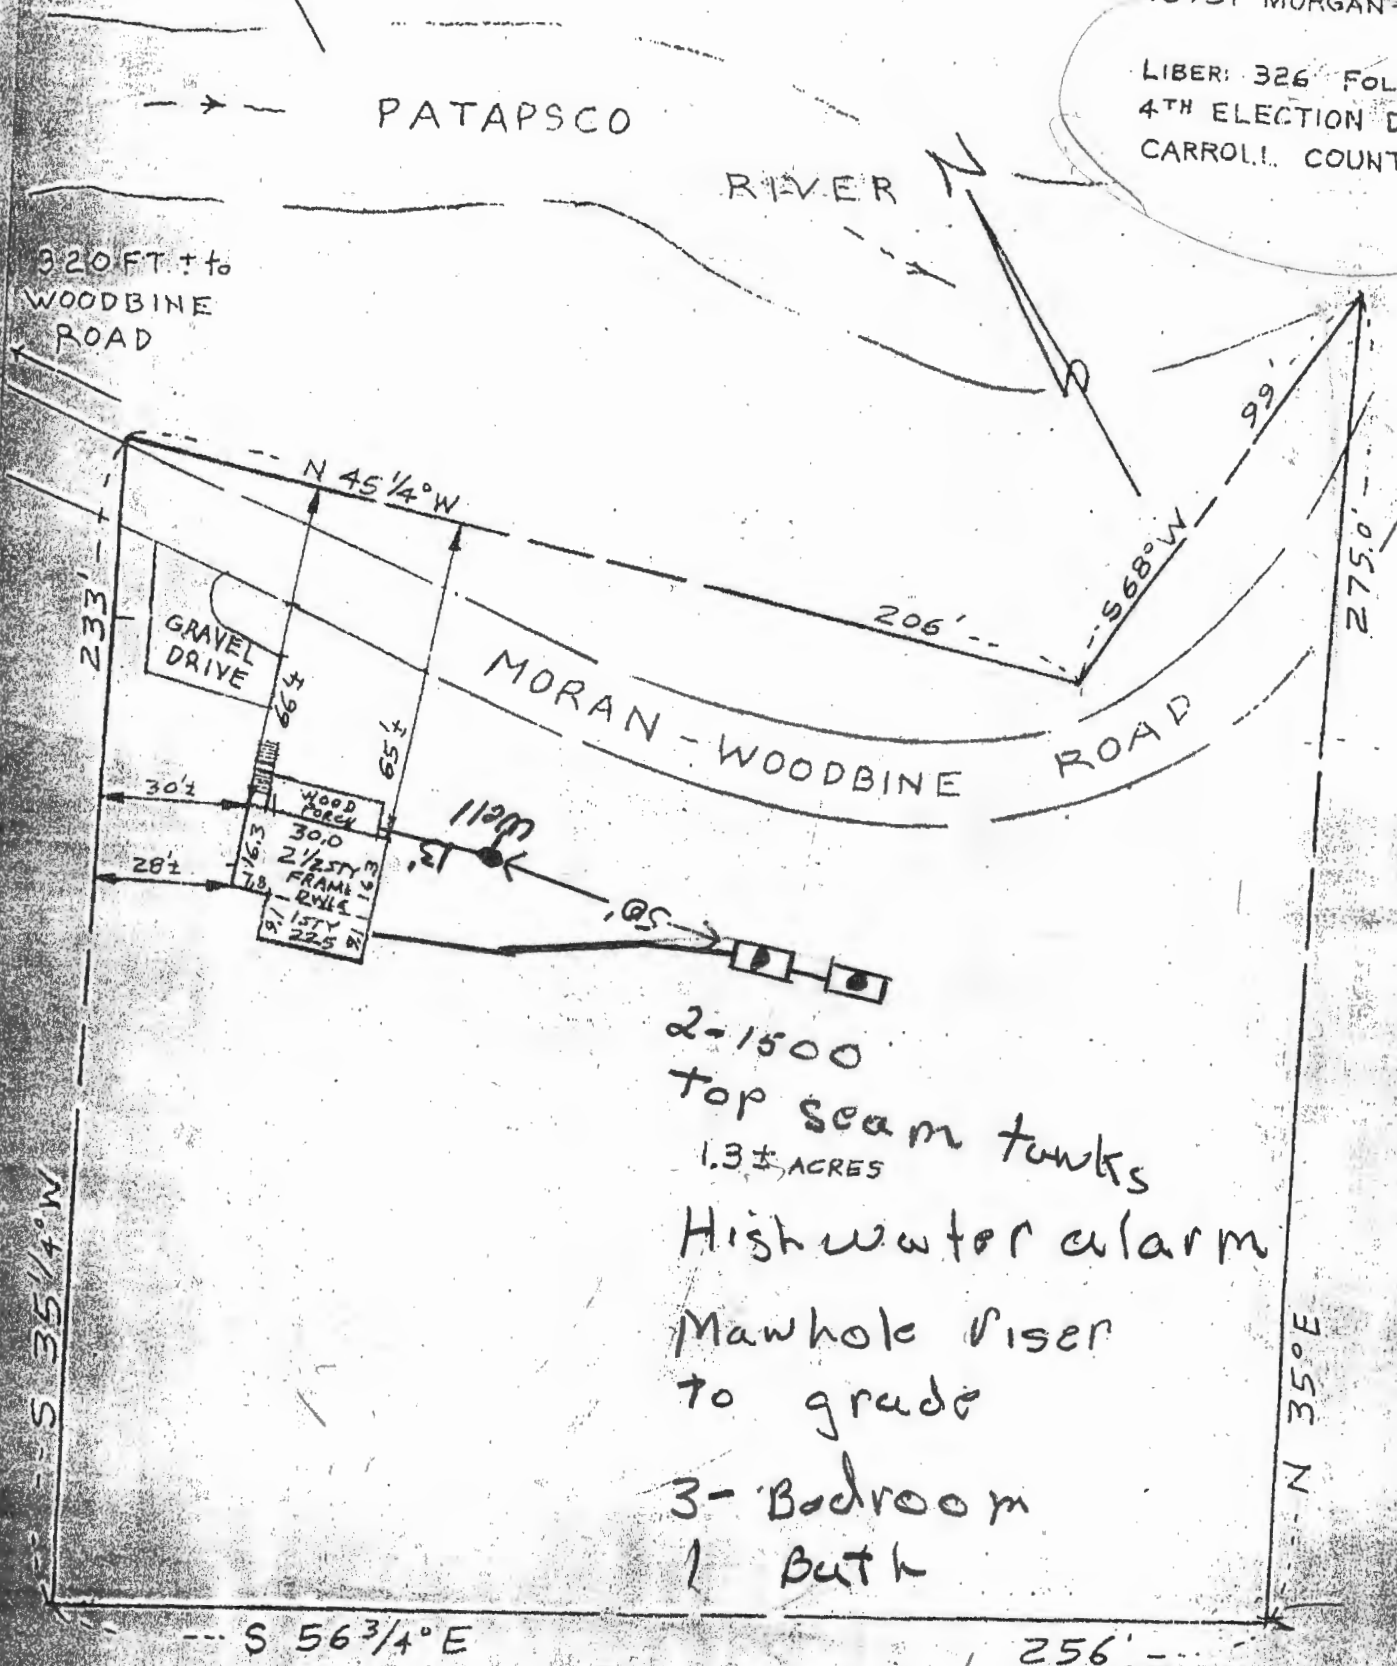 MORGAN-
LIBER: 326 FOL
4TH ELECTION D
CARROLL COUNT
PATAPSCO
RIVER
N
320 FT. ± to
WOODBINE
ROAD
N 45 1/4° W
206'
S 68° W
99'
275.0'
233'
GRAVEL
DRIVE
66'±
65'±
MORAN-WOODBINE ROAD
30'±
28'±
WOOD
PORCH
30.0
2 1/2 STY
FRAME
16.3
16.3
7.8
1 STY
22.5
9.1
Well
13'
50'
2-1500
Top seam tanks
1.3 ± ACRES
High water alarm
Manhole riser
to grade
3- Bedroom
1 Bath
S 35 1/4° W
N 35° E
S 56 3/4° E
256'